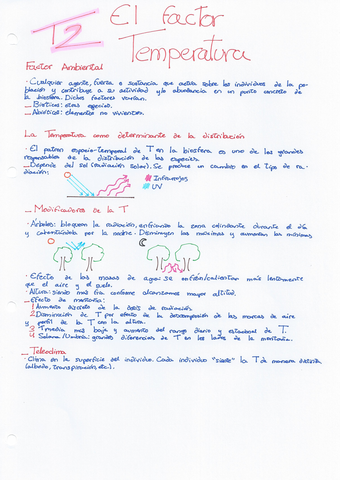 T2
El Factor
Temperatura
Factor Ambiental
· Cualquier agente, fuerza o sustancia que actúa sobre los individuos de la po-
blación y contribuye a su actividad y/o abundancia en un punto concreto de
la biosfera. Dichos factores varían.
_ Bióticos: otras especies.
_ Abióticos: elementos no vivientes.
La Temperatura como determinante de la distribución
· El patrón espacio-temporal de T en la biosfera es uno de los grandes
responsables de la distribución de las especies.
_ Depende del sol (radiación solar). Se produce un cambio en el tipo de ra-
diación:
Infrarrojos
UV
_ Modificadores de la T
· Árboles: bloquean la radiación, enfriando la zona colindante durante el día
y calentándola por la noche. Disminuyen las máximas y aumentan las mínimas
· Efecto de las masas de agua: se enfrían/calientan más lentamente
que el aire y el suelo.
· Altura: siendo más fría conforme alcanzamos mayor altitud.
_ Efecto de montaña:
1 Aumento directo de la dosis de radiación
2 Disminución de T por efecto de la descompresión de las masas de aire
y perfil de la T con la altura.
3 T media más baja y aumento del rango diario y estacional de T.
4 Solana/Umbría: grandes diferencias de T en las laderas de la montaña.
_ Teleoclima
· Clima en la superficie del individuo. Cada individuo "siente" la T de manera distinta
(albedo, transpiración, etc.).